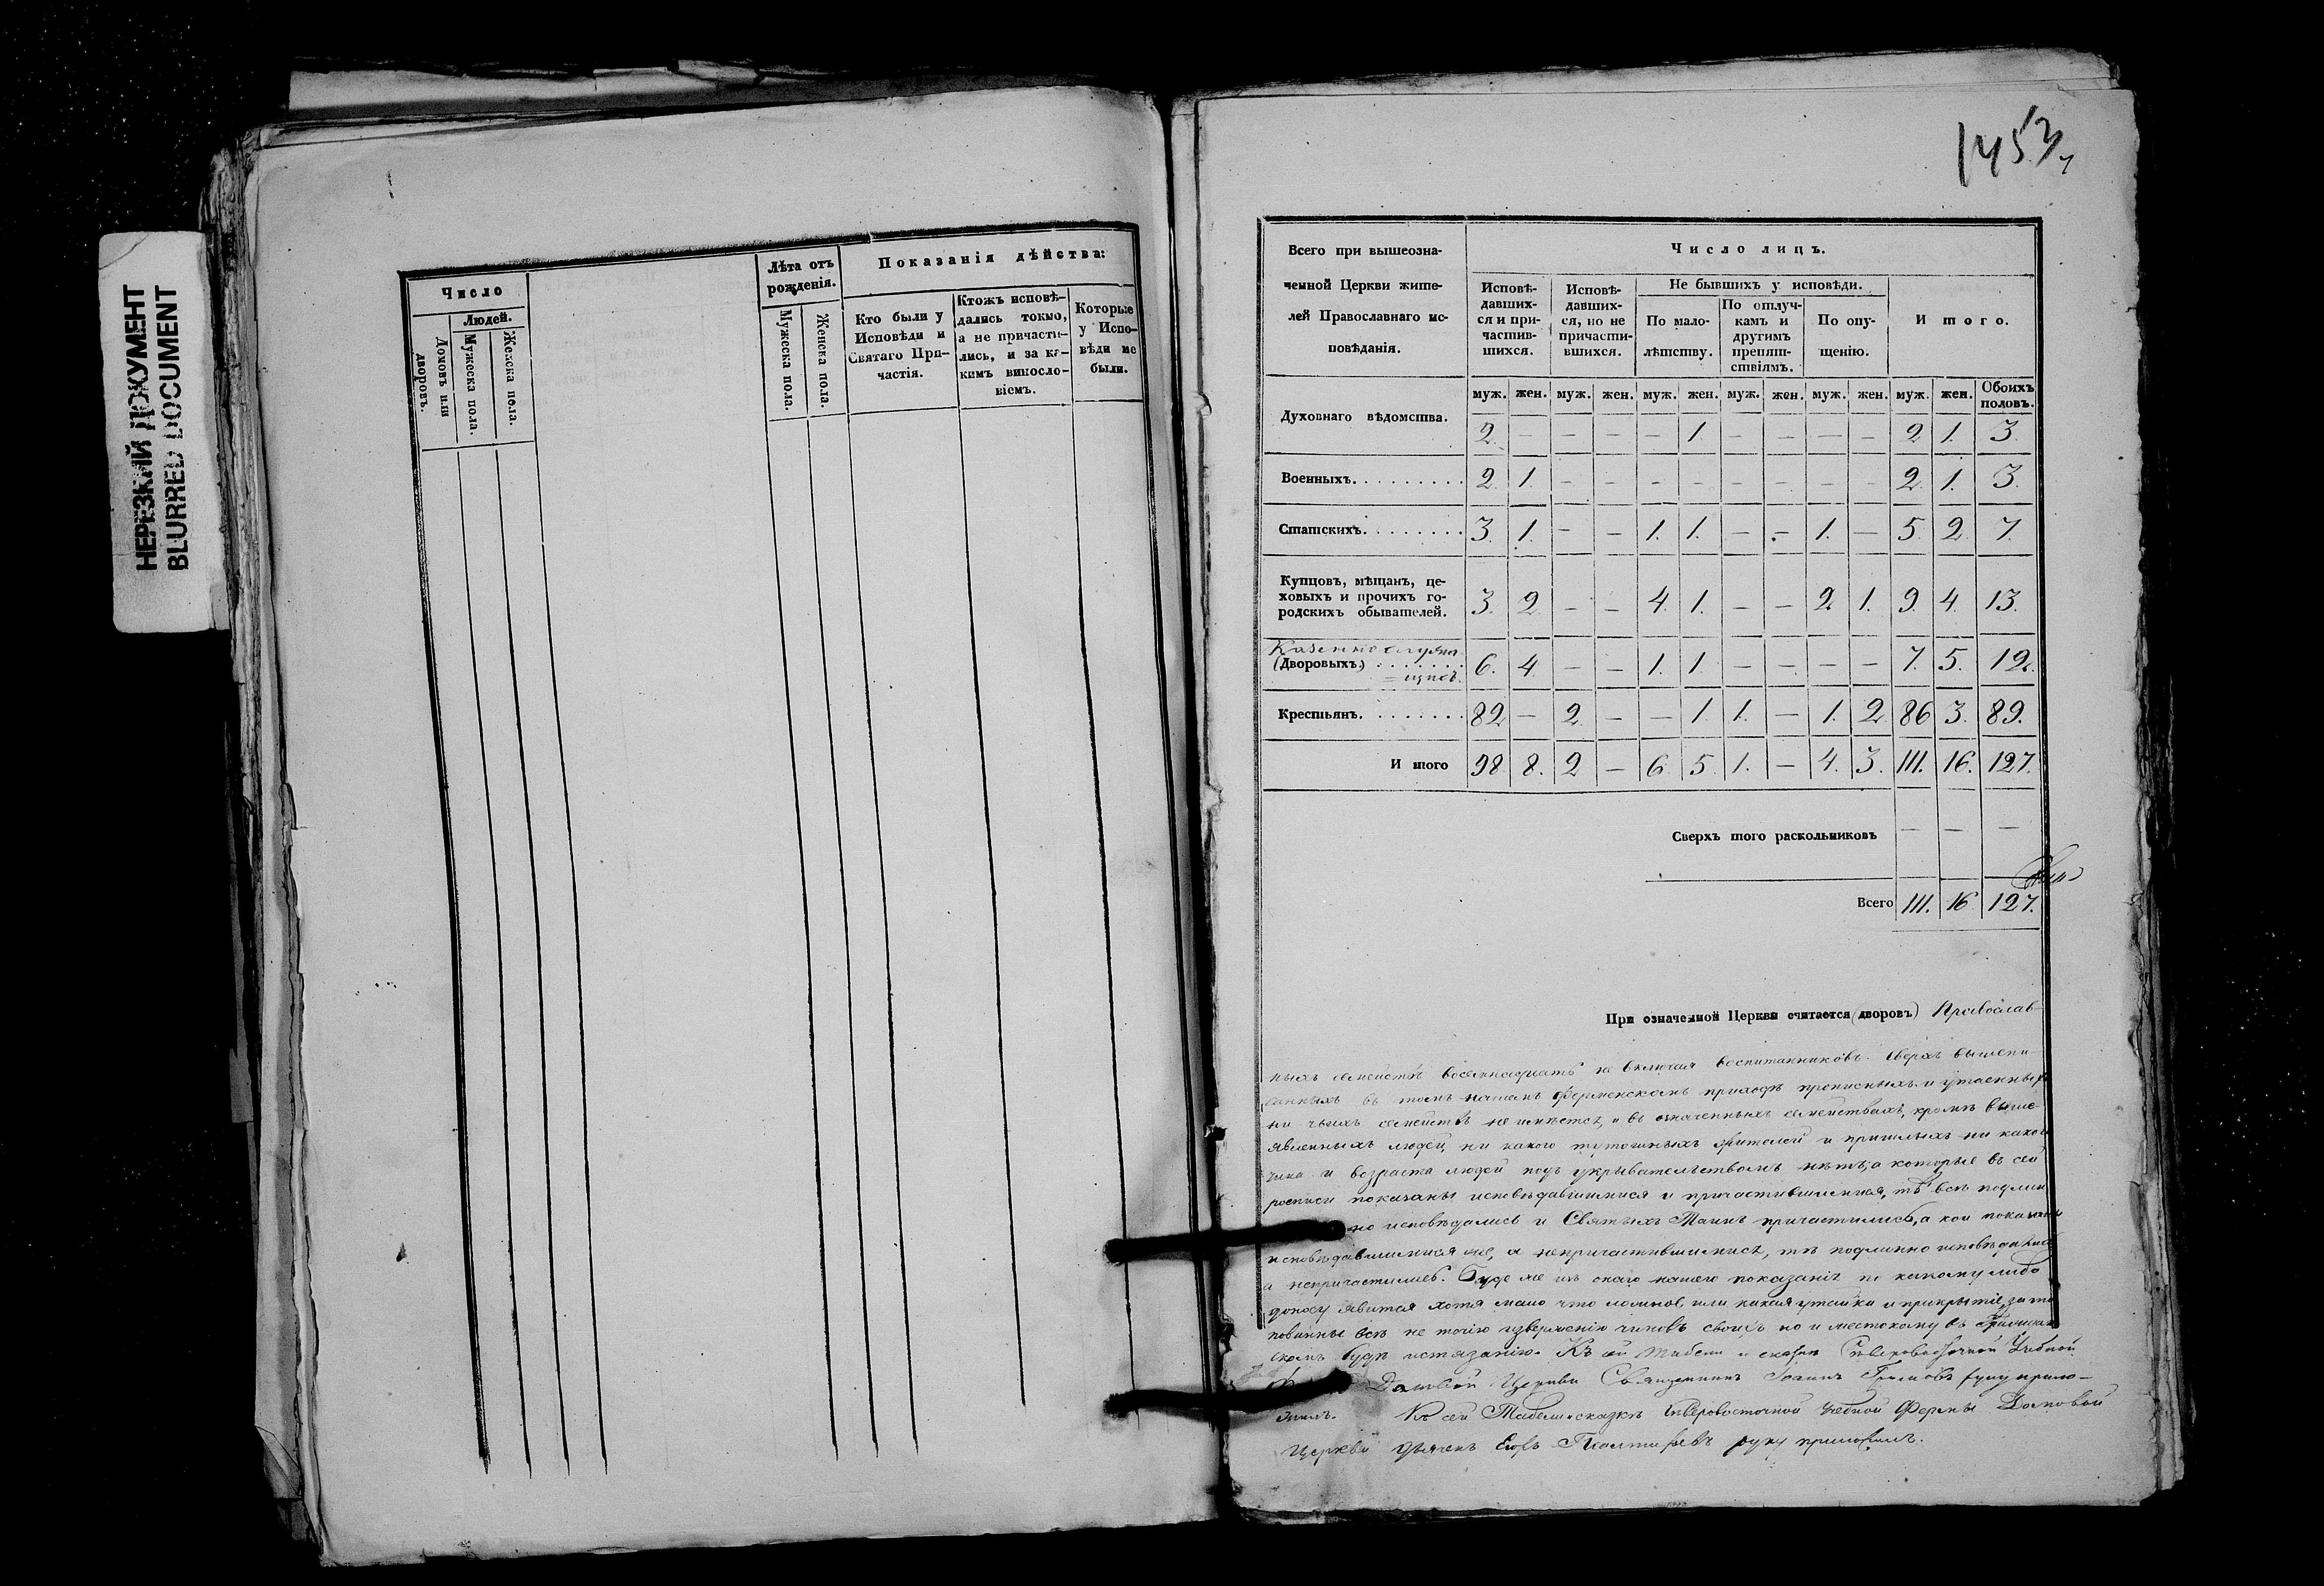 НЕРЕЗКИЙ ДОКУМЕНТ
BLURRED DOCUMENT
Число
Людей.
Домовъ или дворовъ.
Мужеска пола.
Женска пола.
Лѣта отъ рожденія.
Мужеска пола.
Женска пола.
Показанія дѣйства:
Кто были у
Исповѣди и
Святаго При-
частія.
Ктожъ исповѣ-
дались токмо,
а не причасти-
лись, и за ка-
кимъ винословіемъ.
Которые
у Испо-
вѣди не
были.
1453
Всего при вышеозна-
ченной Церкви жите-
лей Православнаго ис-
повѣданія.
Число лицъ.
Исповѣ-
давших-
ся и при-
частив-
шихся.
Исповѣ-
давших-
ся, но не
причасти-
вшихся.
Не бывшихъ у исповѣди.
По мало-
лѣтству.
По отлуч-
камъ и
другимъ
препят-
ствіямъ.
По опу-
щенію.
И того.
муж. жен. муж. жен. муж. жен. муж. жен. муж. жен. муж. жен. Обоихъ половъ.
Духовнаго вѣдомства. 2. — — — — 1. — — — — 2. 1. 3.
Военныхъ. 2. 1. — — — — — — — — 2. 1. 3.
Статскихъ. 3. 1. — — 1. 1. — — 1. — 5. 2. 7.
Купцовъ, мѣщанъ, це-
ховыхъ и прочихъ го-
родскихъ обывателей. 3. 2. — — 4. 1. — — 2. 1. 9. 4. 13.
(Дворовыхъ) 6. 4. — — 1. 1. — — — — 7. 5. 12.
Крестьянъ. 82 — 2. — — 1. 1. — 1. 2 86 3. 89.
И того 98 8. 2 — 6. 5. 1. — 4. 3. 111. 16. 127.
Сверхъ того раскольниковъ — — —
Всего 111. 16 127.
При означенной Церкви считается (дворовъ) Православ-
ныхъ семействъ восемнадцать не включая воспитанниковъ. Сверхъ вышепи-
санныхъ въ томъ нашемъ Ферменскомъ приходѣ прописныхъ и утаенныхъ
ни чьихъ семействъ не имѣется, и въ означенныхъ семействахъ, кромѣ выше-
явленныхъ людей, ни какого тутошныхъ жителей и пришлыхъ ни какого
чина и возраста людей подъ укрывательствомъ нѣтъ; а которые въ сей
росписи показаны исповѣдавшимися и причастившимися, тѣ всѣ подлин
но исповѣдались и Святыхъ Таинъ причастились, а кои показаны
исповѣдавшимися же, а непричастившимися, тѣ подлинно исповѣдались
а непричастились. Буде же изъ онаго нашего показанія по какому либо
доносу явится хотя мало что ложное, или какая утайка и прикрытіе, за то
повинны всѣ не точію изверженію чиновъ своихъ но и жестокому въ Граждан
скомъ судѣ истязанію. Къ сей табели и сказкѣ Сѣверовосточной Учебной
Домовой Церкви Священникъ Іоаннъ руку прило-
жилъ. Къ сей Табели и сказкѣ Сѣверовосточной Учебной Фермы Домовой
Церкви дьячекъ руку приложилъ.